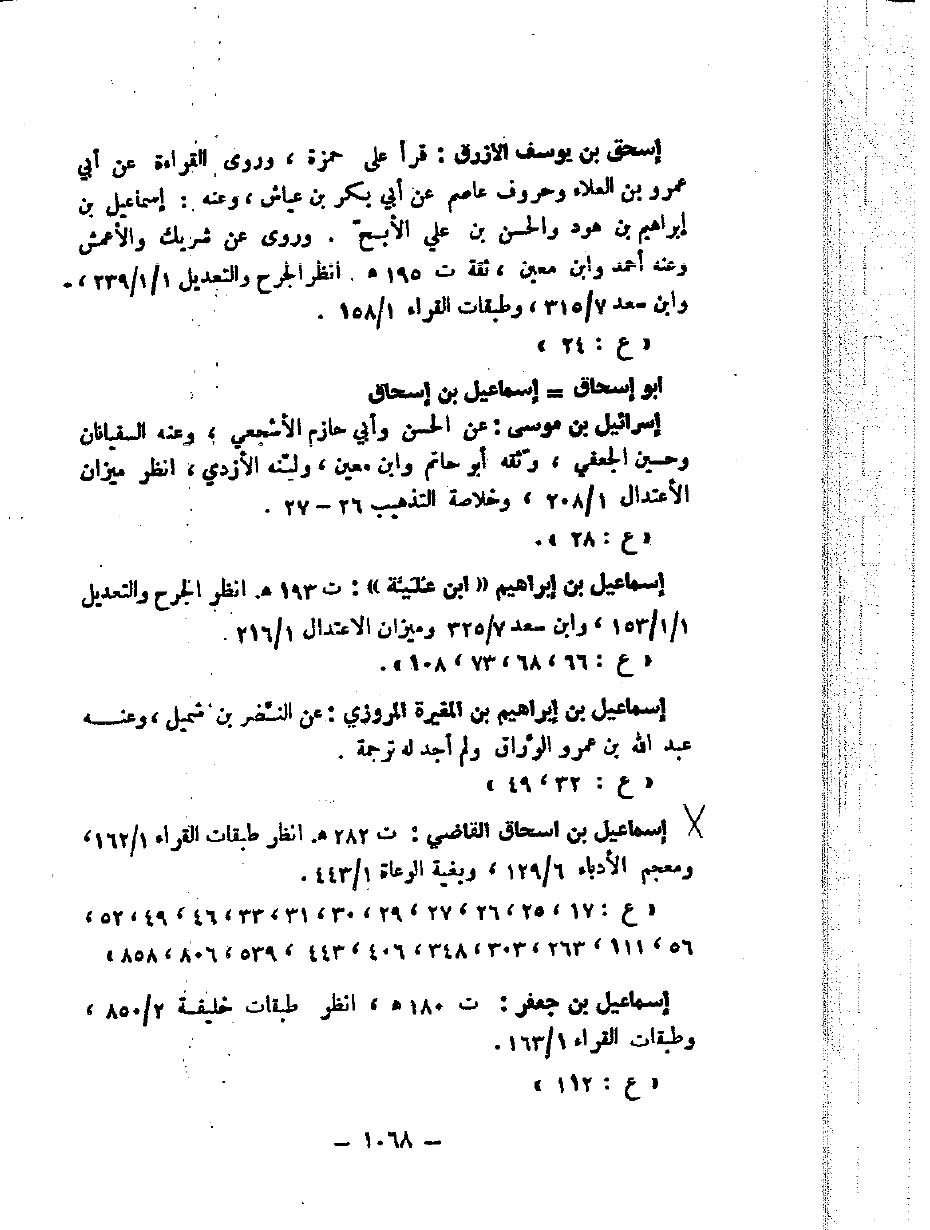 إسحق بن يوسف الازرق : قرأ على حمزة ، وروى القراءة عن أبي
عمرو بن العلاء وحروف عاصم عن أبي بكر بن عياش ، وعنه : إسماعيل بن
إبراهيم بن هود والحسن بن علي الأبحّ . وروى عن شريك والأعمش
وعنه أحمد وابن معين ، ثقة ت ١٩٥ ه . انظر الجرح والتعديل ٣٣٩/١/١ ،
وابن سعد ٣١٥/٧ ، وطبقات القراء ١٥٨/١ .
« ع : ٢٤ »
ابو إسحاق = إسماعيل بن إسحاق
إسرائيل بن موسى : عن الحسن وأبي حازم الأشجعي ، وعنه السفيانان
وحسين الجعفي ، وثّقه أبو حاتم وابن معين ، وليّنه الأزدي ، انظر ميزان
الأعتدال ٢٠٨/١ ، وخلاصة التذهيب ٢٦ – ٢٧ .
« ع : ٢٨ » .
إسماعيل بن إبراهيم « ابن عُلَيَّة » : ت ١٩٣ ه . انظر الجرح والتعديل
١٥٣/١/١ ، وابن سعد ٣٢٥/٧ وميزان الاعتدال ٢١٦/١ .
« ع : ٦٦ ، ٦٨ ، ٧٣ ، ١٠٨ » .
إسماعيل بن إبراهيم بن المغيرة المروزي : عن النَّضر بن شميل ، وعنـــه
عبد الله بن عمرو الورَّاق ولم أجد له ترجمة .
« ع : ٣٢ ، ٤٩ »
إسماعيل بن اسحاق القاضي : ت ٢٨٢ ه . انظر طبقات القراء ١٦٢/١ ،
ومعجم الأدباء ١٢٩/٦ ، وبغية الوعاة ٤٤٣/١ .
« ع : ١٧ ، ٢٥ ، ٢٦ ، ٢٧ ، ٢٩ ، ٣٠ ، ٣١ ، ٣٣ ، ٤٦ ، ٤٩ ، ٥٢ ،
٥٦ ، ١١١ ، ٢٦٣ ، ٣٠٣ ، ٣٤٨ ، ٤٠٦ ، ٤٤٣ ، ٥٣٩ ، ٨٠٦ ، ٨٥٨ »
إسماعيل بن جعفر : ت ١٨٠ ه ، انظر طبقات خليفـة ٨٥٠/٢ ،
وطبقات القراء ١٦٣/١ .
« ع : ١١٢ »
– ١٠٦٨ –